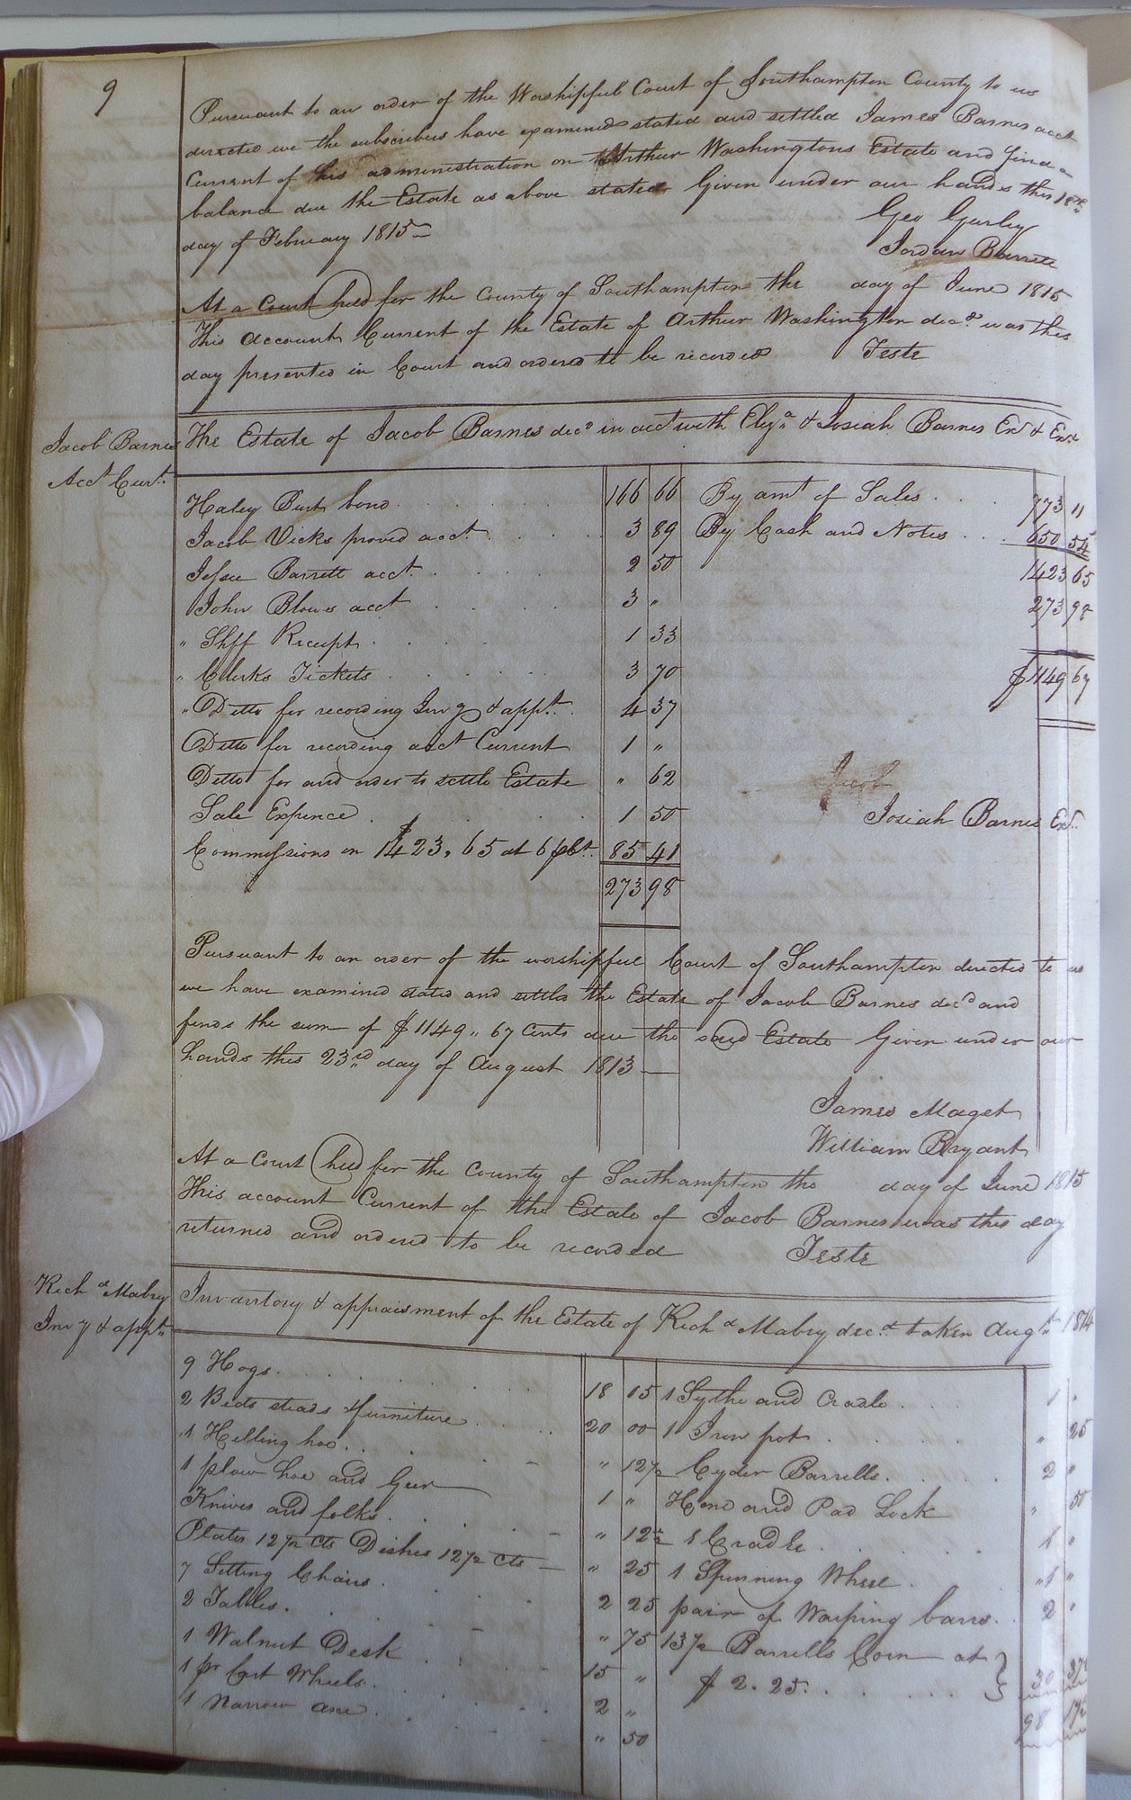 9
Pursuant to an order of the Worshipful Court of Southampton County to us
directed we the subscribers have examined stated and settled James Barnes acct
Current of his administration on Arthur Washingtons Estate and find a
balance due the Estate as above stated Given under our hands this 18th
day of February 1815
Geo Gurley
Jordan Barrett
At a Court held for the County of Southampton the day of June 1815
This account Current of the Estate of Arthur Washington decd. was this
day presented in Court and ordered to be recorded Teste
Jacob Barnes
Acct. Curt.
The Estate of Jacob Barnes decd in acct with Elija & Josiah Barnes Exr & Exr
Haley Burt bond 166 66 By amt of Sales 773 11
Jacob Vicks proved acct. 3 89 By Cash and Notes 650 54
Jessee Barrett acct. 2 50 1423 65
John Blows acct 3 " 273 98
" Shff Receipt 1 33
" Clerks Tickets 3 70 $1149 67
" Ditto for recording Invy & appt. 4 37
Ditto for recording acct Current 1 "
Ditto for and order to settle Estate " 62 Jacob
Sale Expence 1 50 Josiah Barnes Exr.
Commissions on $1423.65 at 6 pCt. 85 41
273 98
Pursuant to an order of the worshipful Court of Southampton directed to us
we have examined stated and settled the Estate of Jacob Barnes decd and
finds the sum of $1149 " 67 Cents due the said Estate Given under our
hands this 23rd day of August 1813
James Maget
William Bryant
At a Court held for the County of Southampton the day of June 1815
This account Current of the Estate of Jacob Barnes was this day
returned and ordered to be recorded Teste
Richd Mabry
Invy & appt.
Inventory & appraisment of the Estate of Richd Mabry decd. taken Augt. 1814
9 Hogs 18 15 1 Sythe and Cradle 1 "
2 Beds steads & furniture 20 00 1 Iron pot " 25
1 Hilling hoe " 12½ Cyder Barrells 2 "
1 plow hoe and Geer 1 " Hone and Pad Lock " 50
Knives and folks " 12½ 1 Cradle 1 "
Plates 12½ Cts Dishes 12½ Cts " 25 1 Spinning Wheel " 1 "
7 Setting Chairs 2 25 pair of Warping bars 2 "
2 Tables " 75 13½ Barrells Corn at
1 Walnut Desk 15 " $2.25 30 37½
1 pr Cart Wheels 2 " 98 17½
1 Narrow axe " 50